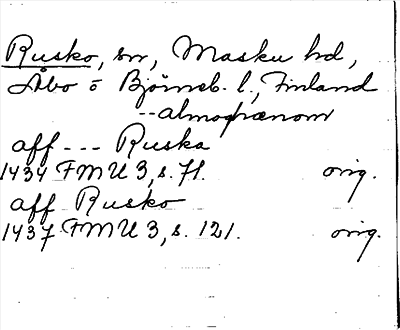 Rusko, sn, Masku hd,
Åbo o Björneb. l., Finland
-- almogænom
aff --- Ruska
1434 FMU 3, s. 71. orig.
aff Rusko
1437 FMU 3, s. 121. orig.